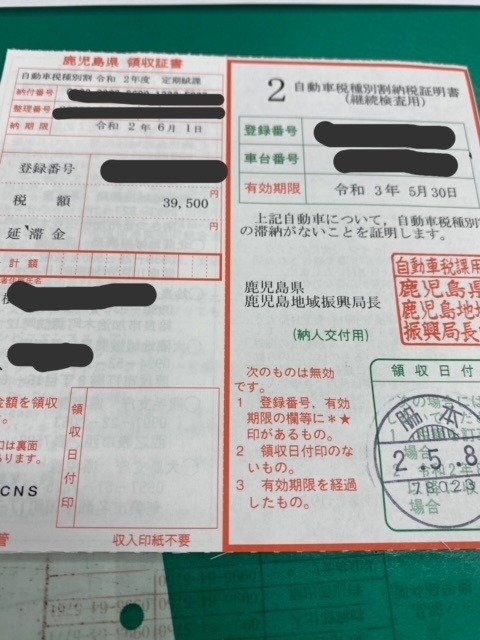 鹿児島県 領収証書
自動車税種別割 令和 2年度 定期賦課
納付番号
整理番号
納期限 令和 2年 6月 1日
登録番号
税 額 39,500 円
延滞金 円
計 額
金額を領収
口は裏面
あります。
CNS
領収日付印
収入印紙不要
2 自動車税種別割納税証明書
(継続検査用)
登録番号
車台番号
有効期限 令和 3年 5月30日
上記自動車について,自動車税種別
の滞納がないことを証明します。
鹿児島県
鹿児島地域振興局長
(納人交付用)
自動車税課用
鹿児島県
鹿児島地
振興局長
次のものは無効
です。
1 登録番号,有効
期限の欄等に*★
印があるもの。
2 領収日付印のな
いもの。
3 有効期限を経過
したもの。
領収日付
脇本
2.5.8
78023